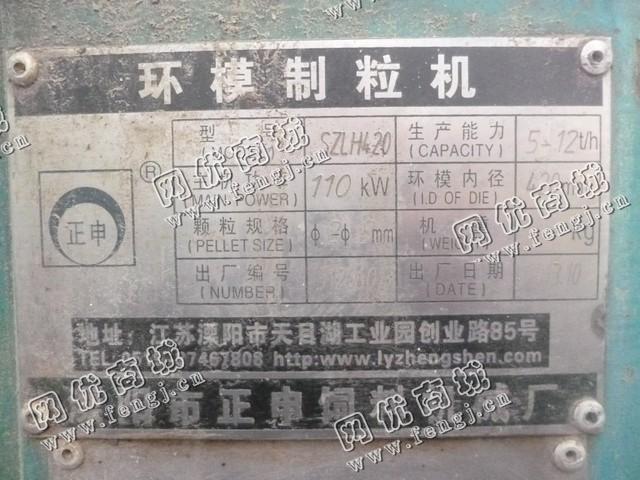 环模制粒机
型 SZLH420 生产能力 5-12t/h
(CAPACITY)
110 kW 环模内径
(MAIN POWER) (I.D OF DIE)
颗粒规格 Φ -Φ mm 机
(PELLET SIZE) kg
出厂编号 出厂日期
(NUMBER) (DATE)
®
正申
地址: 江苏溧阳市天目湖工业园创业路85号
TEL: 7467808 http:www.lyzhengshen.com
市正申饲料 厂
网优商城
www.fengj.cn
网优商城
www.fengj.cn
网优商城
www.fengj.cn
网优商城
www.fengj.cn